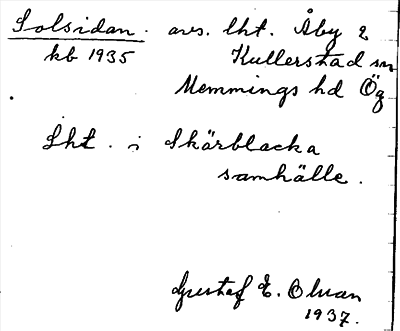 Solsidan. avs. lht. Åby 2
kb 1935 Kullerstad sn
Memmings hd Ög
Lht. i Skärblacka
samhälle.
Gustaf E. Olvan
1937.